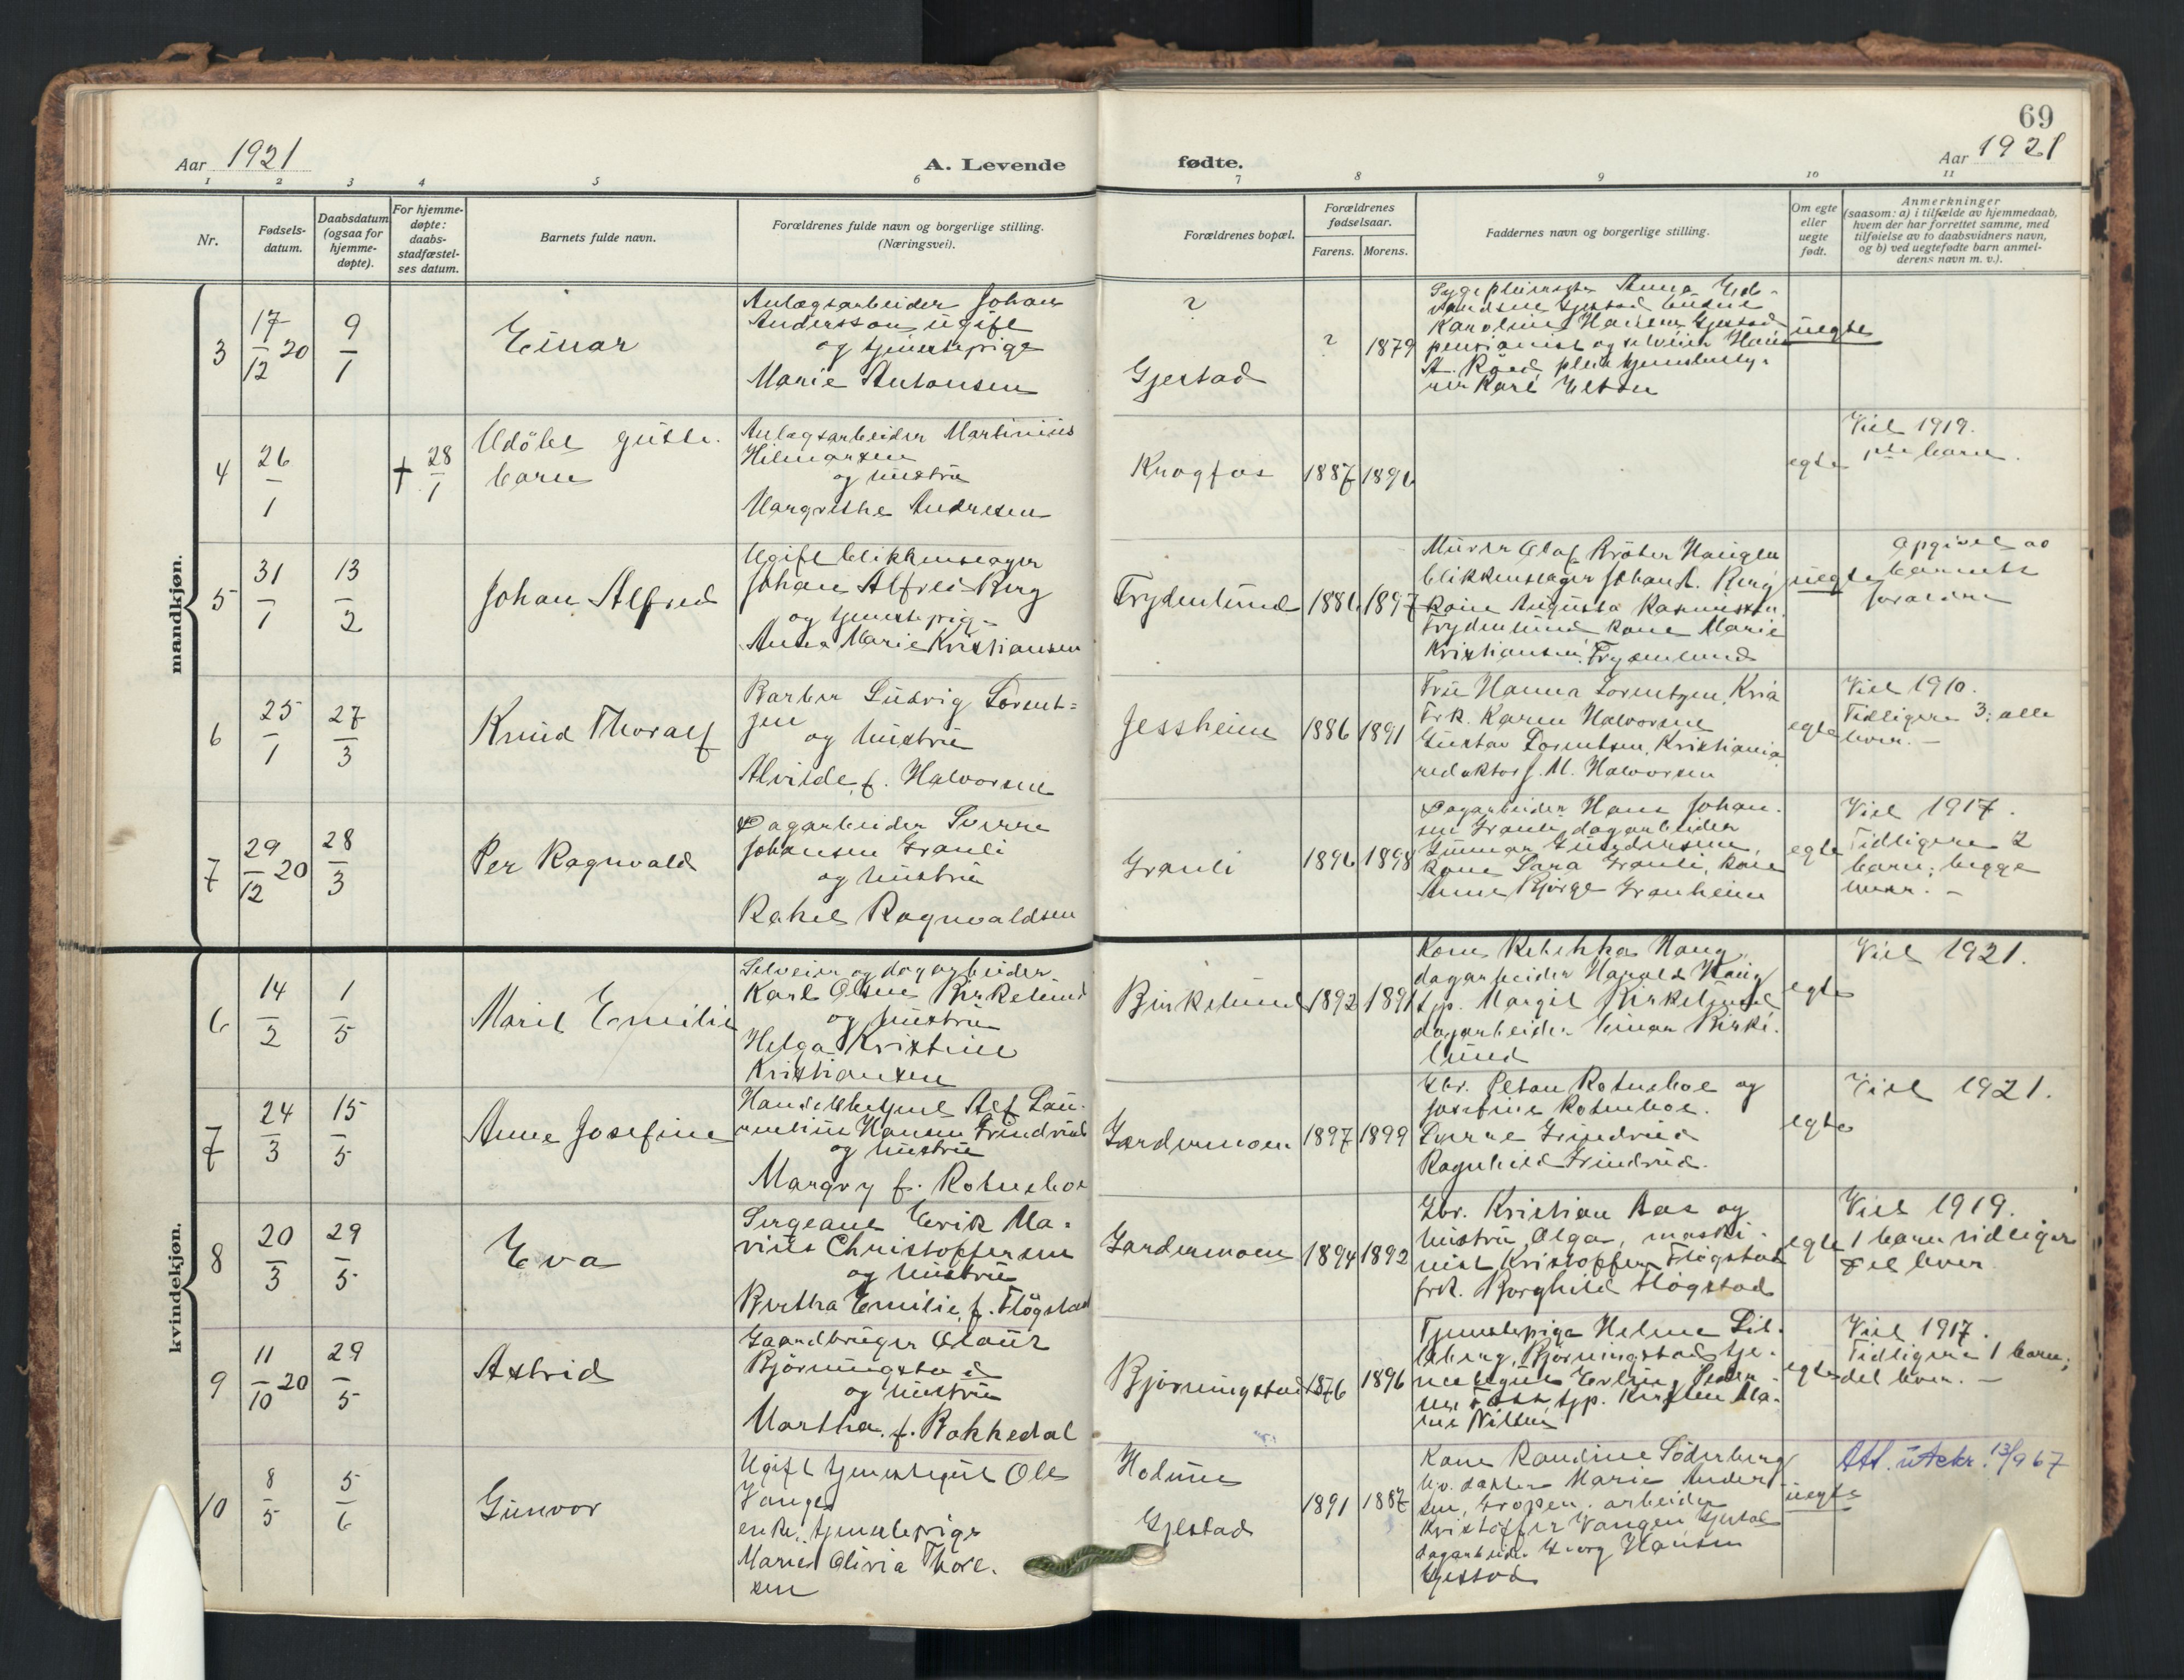 69
Aar 1921
A. Levende
fødte.
Aar 1921
1 2 3 4 5 6 7 8 9 10 11
Nr.
Fødsels-
datum.
Daabsdatum
(ogsaa for
hjemme-
døpte).
For hjemme-
døpte:
daabs-
stadfæstel-
ses datum.
Barnets fulde navn.
Forældrenes fulde navn og borgerlige stilling.
(Næringsvei).
Forældrenes bopæl.
Forældrenes
fødselsaar.
Farens. Morens.
Faddernes navn og borgerlige stilling.
Om egte
eller
uegte
født.
Anmerkninger
(saasom: a) i tilfælde av hjemmedaab,
hvem der har forrettet samme, med
tilføielse av to daabsvidners navn,
og b) ved uegtefødte barn anmel-
derens navn m. v.).
mandkjøn.
3
17/12 20
9/1
Einar
Anlægsarbeider Johan
Andersson, ugift
og tjenestepige
Marie Antonsen
?
Gjestad
?
1879
Karoline Hansen Gjestad
pensionist og selveier Hans
uegte
4
26/1
† 28/1
Udöbt gutte-
barn
Anlægsarbeider Martinius
Hilmarsen
og hustru
Margrethe Andresen
Knogfos
1887
1896
egte
Viet 1919.
1ste barn.
5
31/1
13/2
Johan Alfred
Ugift blikkenslager
Johan Alfred Berg
og tjenestepige
Anna Marie Kristiansen
Frydenlund
1886
1897
Murer Olaf Bröter Hauglen
blikkenslager Johan A. Berg
kone Augusta Rasmussen,
Frydenlund kone Marie
Kristiansen, Frydenlund
uegte
Opgivet av
barnets
forældre
6
25/1
27/3
Knud Thoralf
Barber Ludvig Lorent-
zen
og hustru
Alvilde, f. Halvorsen
Jessheim
1886
1891
Fru Hanna Lorentzen, Kria
Frk. Karen Halvorsen
Gustav Lorentsen, Kristiania
redaktør J. M. Halvorsen
egte
Viet 1910.
Tidligere 3; alle
lever. —
7
29/12 20
28/3
Per Ragnvald
Dagarbeider Sverre
Johansen Granli
og hustru
Rakel Ragnvaldsen
Granli
1896
1898
Dagarbeider Hans Johan-
sen Granli, dagarbeider
Gunnar Gundersen,
kone Sara Granli, kone
Anne Bjørge Granheim
egte
Viet 1917.
Tidligere 2
barn; begge
lever. —
kvindekjøn.
6
14/2
1/5
Marit Emilie
Selveier og dagarbeider
Karl Olsen Birkelund
og hustru
Helga Kristine
Kristiansen
Birkelund
1892
1891
Kone Rebekka Haug
dagarbeider Harald Haug
tjp. Margit Birkelund
dagarbeider Einar Birke-
lund
egte
Viet 1921.
7
24/3
15/5
Anne Josefine
Handelsbetjent Alf Lau-
rentius Hansen Grindrud
og hustru
Margry f. Rotneboe
Gardermoen
1897
1899
Gbr. Peton Rotneboe og
Josefine Rotneboe.
Sverre Grindrud
Ragnhild Grindrud.
egte
Viet 1921.
8
20/3
29/5
Eva
Sergeant Erik Ma-
rius Christoffersen
og hustru
Bertha Emilie, f. Flögstad
Gardermoen
1894
1892
Gbr. Kristian Aas og
hustru, Olga, maski-
nist Kristoffer Flögstad
frk. Borghild Flögstad
egte
Viet 1919.
1 barn tidligere
det lever
9
11/10 20
29/5
Astrid
Gaardbruger Olaus
Bjørningstad
og hustru
Martha, f. Bakkedal
Bjørningstad
1876
1896
Tjenestepige Helene Lil-
leberg, Bjørningstad, tje-
egte
Viet 1917.
Tidligere 1 barn;
det lever. —
10
8/5
5/6
Gunvor
Ugift tjenestegut Ole
Vangen
enke, tjenestepige
Marie Olivia Thore-
sen
Holum
Gjestad
1891
1887
Kone Randine Söderberg
hv. datter Marie Ander-
sen, Gropen, arbeider
Kristoffer Vangen Gjestad
dagarbeider Georg Hansen
Gjestad
uegte
Att. utskr. 13/9 67